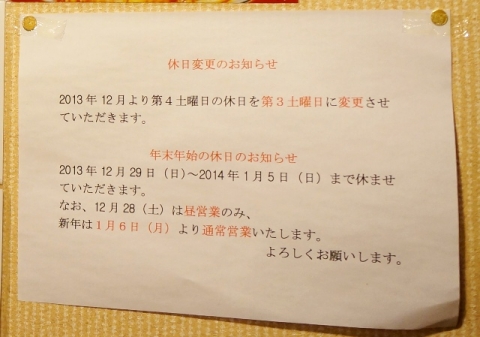 休日変更のお知らせ
2013年12月より第4土曜日の休日を第3土曜日に変更させ
ていただきます。
年末年始の休日のお知らせ
2013年12月29日(日)～2014年1月5日(日)まで休ませ
ていただきます。
なお、12月28(土)は昼営業のみ、
新年は1月6日(月)より通常営業いたします。
よろしくお願いします。